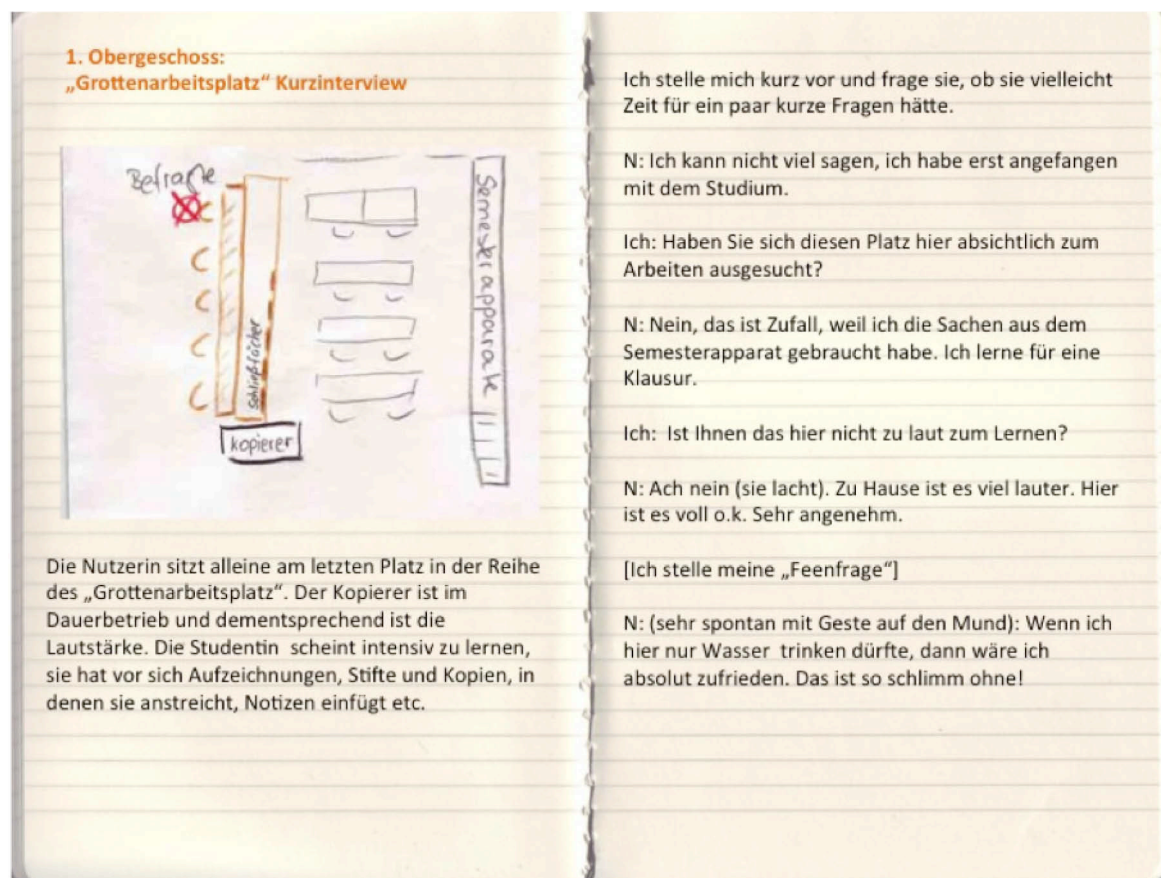 1. Obergeschoss:
„Grottenarbeitsplatz“ Kurzinterview
Befragte
Semesterapparate
Schließfächer
Kopierer
Die Nutzerin sitzt alleine am letzten Platz in der Reihe
des „Grottenarbeitsplatz“. Der Kopierer ist im
Dauerbetrieb und dementsprechend ist die
Lautstärke. Die Studentin scheint intensiv zu lernen,
sie hat vor sich Aufzeichnungen, Stifte und Kopien, in
denen sie anstreicht, Notizen einfügt etc.
Ich stelle mich kurz vor und frage sie, ob sie vielleicht
Zeit für ein paar kurze Fragen hätte.
N: Ich kann nicht viel sagen, ich habe erst angefangen
mit dem Studium.
Ich: Haben Sie sich diesen Platz hier absichtlich zum
Arbeiten ausgesucht?
N: Nein, das ist Zufall, weil ich die Sachen aus dem
Semesterapparat gebraucht habe. Ich lerne für eine
Klausur.
Ich: Ist Ihnen das hier nicht zu laut zum Lernen?
N: Ach nein (sie lacht). Zu Hause ist es viel lauter. Hier
ist es voll o.k. Sehr angenehm.
[Ich stelle meine „Feenfrage“]
N: (sehr spontan mit Geste auf den Mund): Wenn ich
hier nur Wasser trinken dürfte, dann wäre ich
absolut zufrieden. Das ist so schlimm ohne!